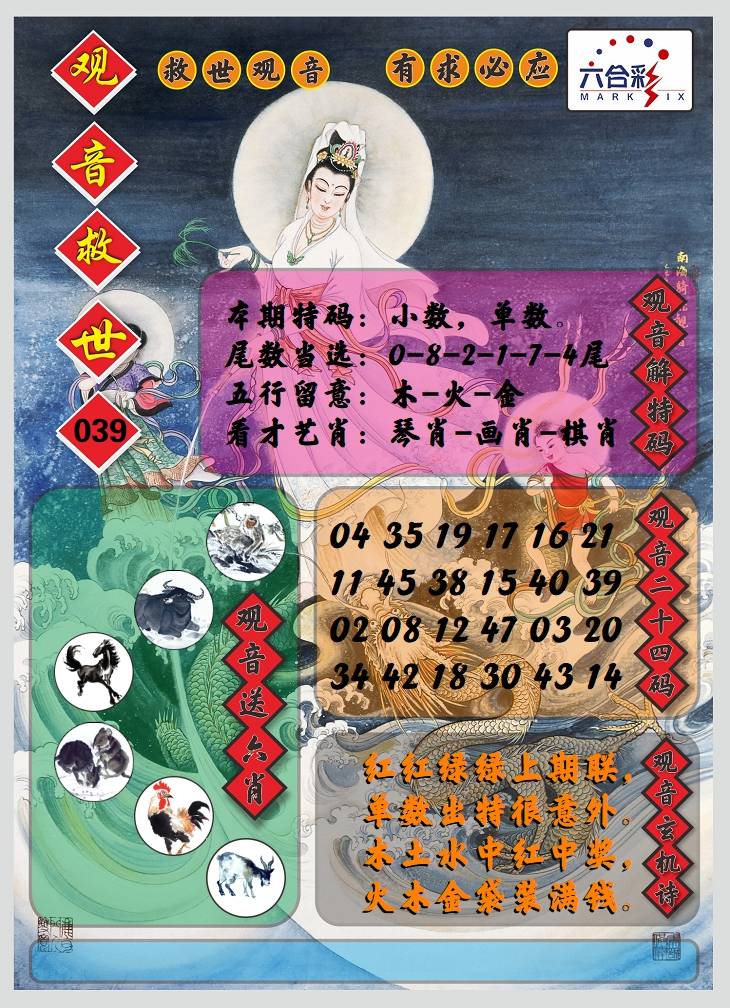 观音救世
039
救世观音 有求必应
六合彩
MARK SIX
本期特码：小数，单数。
尾数当选：0-8-2-1-7-4尾
五行留意：木-火-金
看才艺肖：琴肖-画肖-棋肖
观音解特码
04 35 19 17 16 21
11 45 38 15 40 39
02 08 12 47 03 20
34 42 18 30 43 14
观音二十四码
观音送六肖
红红绿绿上期联，
单数出特很意外。
木土水中红中奖，
火木金袋装满钱。
观音玄机诗